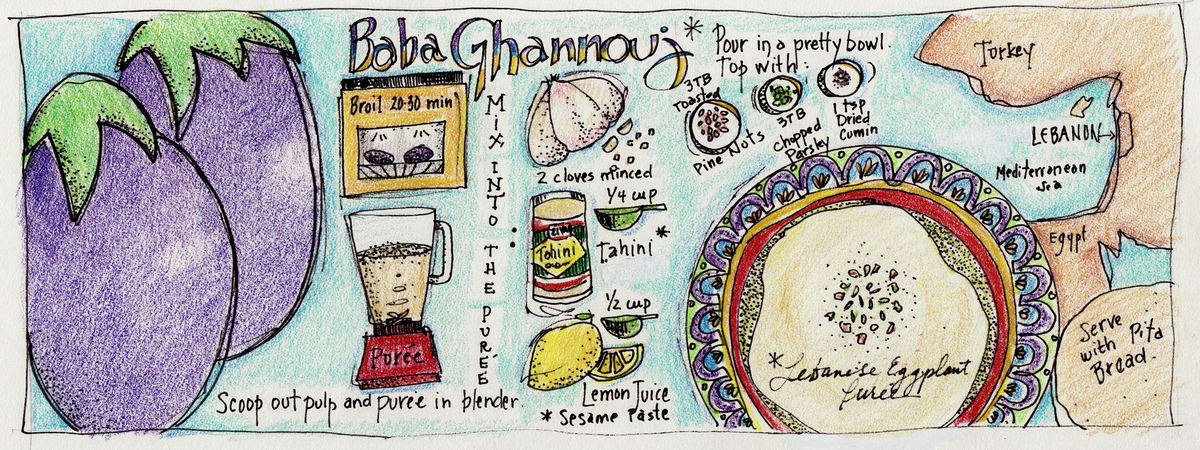 Baba Ghannouj*
Broil 20-30 min
Purée
Scoop out pulp and puree in blender.
MIX INTO THE PURÉE:
2 cloves minced
1/4 cup
Tahini
Tahini*
1/2 cup
Lemon Juice
* Sesame Paste
Pour in a pretty bowl.
Top with:
3TB
Toasted
Pine Nuts
3TB
chopped
Parsley
1 tsp
Dried
Cumin
*Lebanese Eggplant
Puree
Turkey
LEBANON
Mediterranean
Sea
Egypt
Serve
with Pita
Bread.